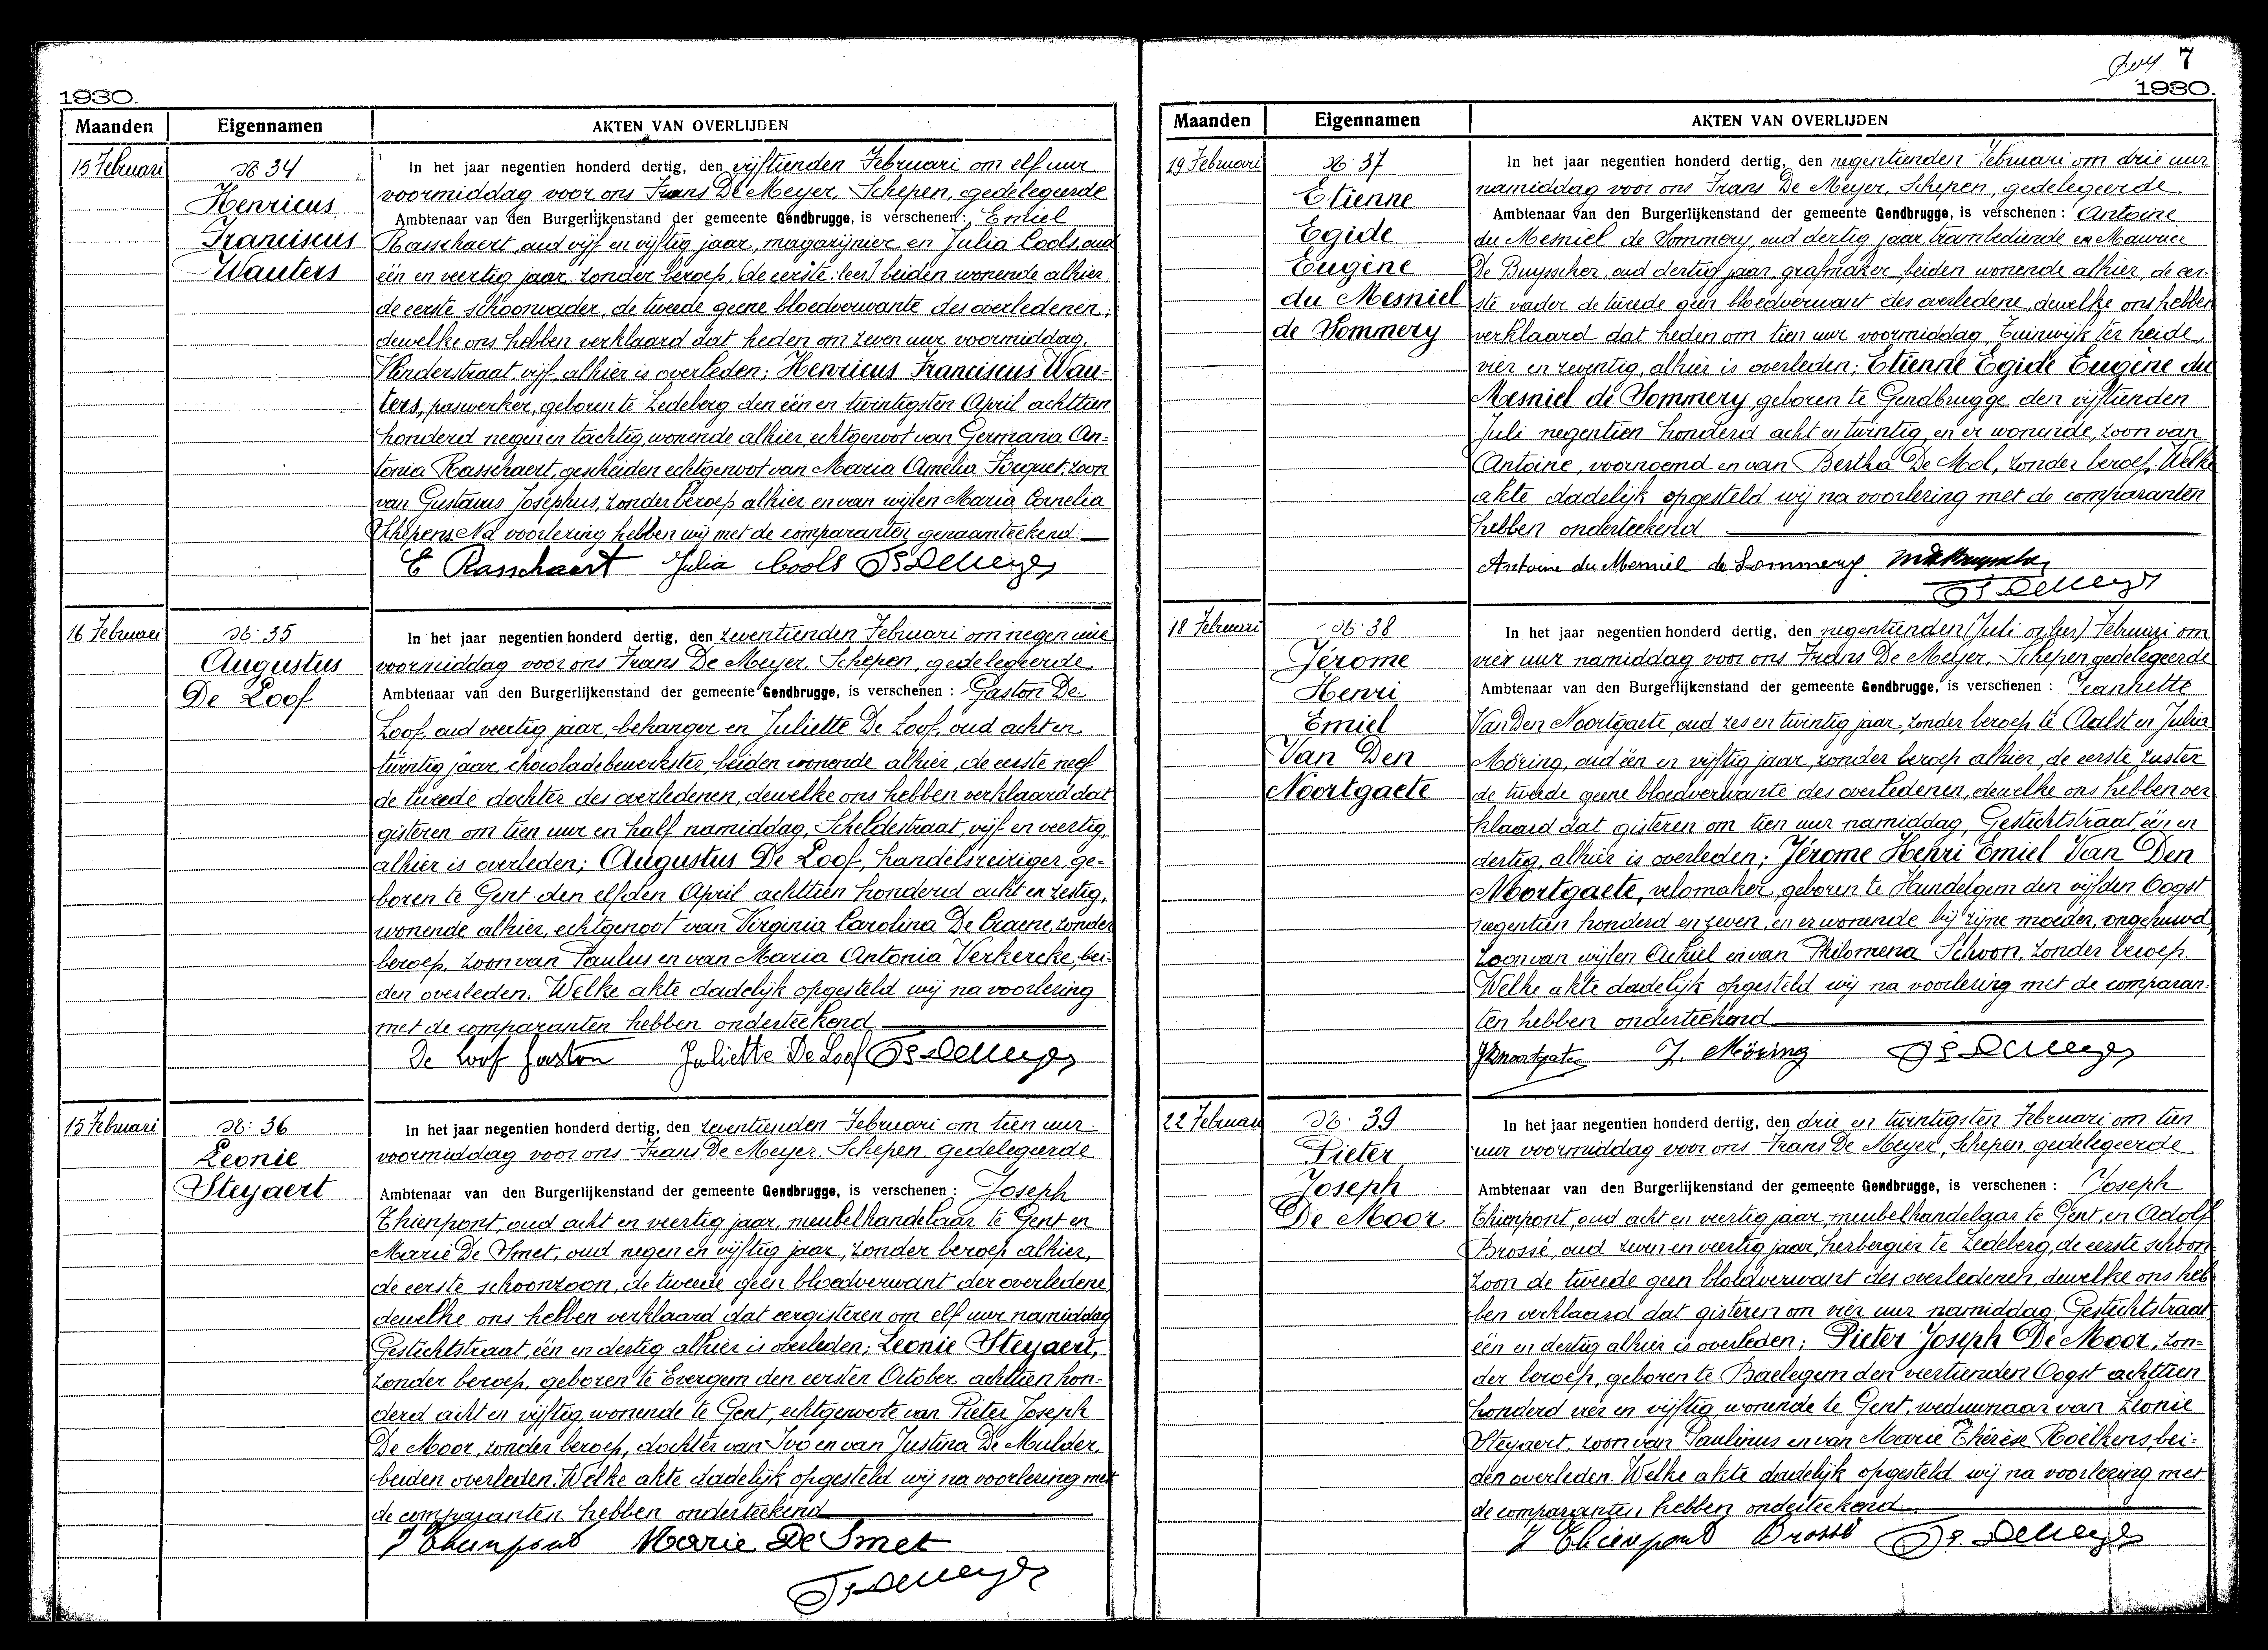 1930.
Maanden Eigennamen AKTEN VAN OVERLIJDEN
15 Februari No 34 In het jaar negentien honderd dertig, den vijftienden Februari om elf uur
Henricus voormiddag voor ons Frans De Meyer, Schepen, gedelegeerde
Ambtenaar van den Burgerlijkenstand der gemeente Gendbrugge, is verschenen: Emiel
Franciscus Rasschaert, oud vijf en vijftig jaar, magazijnier en Julia Cools, oud
Wauters één en veertig jaar zonder beroep, (de eerste: lees) beiden wonende alhier
de eerste schoonvader, de tweede geene bloedverwante des overledenen;
dewelke ons hebben verklaard dat heden om zeven uur voormiddag,
Vlinderstraat vijf, alhier is overleden; Henricus Franciscus Wau-
ters, paswerker, geboren te Ledeberg den één en twintigsten April achttien
honderd negen en tachtig, wonende alhier, echtgenoot van Germana An-
tonia Rasschaert, gescheiden echtgenoot van Maria Amelia Focquet, zoon
van Gustavus Josephus, zonder beroep alhier en van wijlen Maria Cornelia
Schepens. Na voorlezing hebben wij met de comparanten genaamteekend.
E Rasschaert Julia Cools Fs De Meyer
16 Februari No 35 In het jaar negentien honderd dertig, den zeventienden Februari om negen ure
Augustus voormiddag voor ons Frans De Meyer, Schepen, gedelegeerde
De Loof Ambtenaar van den Burgerlijkenstand der gemeente Gendbrugge, is verschenen: Gaston De
Loof, oud veertig jaar, behanger en Juliette De Loof, oud acht en
twintig jaar, chocoladebewerkster, beiden wonende alhier, de eerste neef
de tweede dochter des overledenen, dewelke ons hebben verklaard dat
gisteren om tien uur en half namiddag, Scheldestraat, vijf en veertig,
alhier is overleden; Augustus De Loof, handelsreiziger, ge-
boren te Gent den elfden April achttien honderd acht en zestig,
wonende alhier, echtgenoot van Virginia Carolina De Craene, zonder
beroep, zoon van Paulus en van Maria Antonia Verkercke, bei-
den overleden. Welke akte dadelijk opgesteld wij na voorlezing
met de comparanten hebben onderteekend
De Loof Gaston Juliette De Loof Fs De Meyer
15 Februari No: 36 In het jaar negentien honderd dertig, den zeventienden Februari om tien uur
Leonie voormiddag voor ons Frans De Meyer, Schepen, gedelegeerde
Steyaert Ambtenaar van den Burgerlijkenstand der gemeente Gendbrugge, is verschenen: Joseph
Thienpont, oud acht en veertig jaar, meubelhandelaar te Gent en
Marie De Smet, oud negen en vijftig jaar, zonder beroep alhier,
de eerste schoonzoon, de tweede geen bloedverwant der overledene
dewelke ons hebben verklaard dat eergisteren om elf uur namiddag
Gestichtstraat, één en dertig alhier is overleden; Leonie Steyaert,
zonder beroep, geboren te Evergem den eersten October achttien hon-
derd acht en vijftig, wonende te Gent, echtgenoote van Pieter Joseph
De Moor, zonder beroep, dochter van Ivo en van Justina De Mulder,
beiden overleden. Welke akte dadelijk opgesteld wij na voorlezing met
de comparanten hebben onderteekend
J Thienpont Marie De Smet
Fs De Meyer
7
1930.
Maanden Eigennamen AKTEN VAN OVERLIJDEN
19 Februari No 37 In het jaar negentien honderd dertig, den negentienden Februari om drie uur
Etienne namiddag voor ons Frans De Meyer, Schepen, gedelegeerde
Ambtenaar van den Burgerlijkenstand der gemeente Gendbrugge, is verschenen: Antoine
Egide du Mesniel de Sommery, oud dertig jaar, trambediende en Maurice
Eugène De Buysscher, oud dertig jaar, grafmaker, beiden wonende alhier, de eer-
du Mesniel ste vader de tweede geen bloedverwant des overledene, dewelke ons hebben
de Sommery verklaard dat heden om tien uur voormiddag Tuinwijk ter heide,
vier en zeventig, alhier is overleden; Etienne Egide Eugène du
Mesniel de Sommery geboren te Gendbrugge den vijftienden
Juli negentien honderd acht en twintig, en er wonende, zoon van
Antoine, voornoemd en van Bertha De Mol, zonder beroep. Welke
akte dadelijk opgesteld wij na voorlezing met de comparanten
hebben onderteekend.
Antoine du Mesniel de Sommery MDeBuysscher
Fs De Meyer
18 Februari No 38 In het jaar negentien honderd dertig, den negentienden (Juli Februari om
Jérome vier uur namiddag voor ons Frans De Meyer, Schepen gedelegeerde
Henri Ambtenaar van den Burgerlijkenstand der gemeente Gendbrugge, is verschenen: Jeannette
Emiel Van Den Noortgaete, oud zes en twintig jaar, zonder beroep te Aalst en Julia
Van Den Möring, oud één en vijftig jaar, zonder beroep alhier, de eerste zuster
Noortgaete de tweede geene bloedverwante des overledenen, dewelke ons hebben ver
klaard dat gisteren om tien uur namiddag, Gestichtstraat, één en
dertig, alhier is overleden; Jérome Henri Emiel Van Den
Noortgaete, velomaker, geboren te Hundelgem den vijfden Oogst
negentien honderd en zeven, en er wonende bij zijne moeder, ongehuwd
zoon van wijlen Achiel en van Philomena Schoon, zonder beroep.
Welke akte dadelijk opgesteld wij na voorlezing met de comparan-
ten hebben onderteekend
J. Möring Fs De Meyer
22 Februari No. 39 In het jaar negentien honderd dertig, den drie en twintigsten Februari om tien
Pieter uur voormiddag voor ons Frans De Meyer, Schepen, gedelegeerde
Joseph Ambtenaar van den Burgerlijkenstand der gemeente Gendbrugge, is verschenen: Joseph
De Moor Thienpont, oud acht en veertig jaar, meubelhandelaar te Gent, en Adolf
Brossé, oud zeven en veertig jaar, herbergier te Ledeberg, de eerste schoon
zoon de tweede geen bloedverwant des overledenen, dewelke ons heb
ben verklaard dat gisteren om vier uur namiddag, Gestichtstraat
één en dertig alhier is overleden; Pieter Joseph De Moor, zon-
der beroep, geboren te Baelegem den veertienden Oogst achttien
honderd vier en vijftig, wonende te Gent, weduwnaar van Leonie
Steyaert, zoon van Paulinus en van Marie Thérèse Roelkens, bei-
den overleden. Welke akte dadelijk opgesteld wij na voorlezing met
de comparanten hebben onderteekend
J Thienpont Brossé Fs. De Meyer